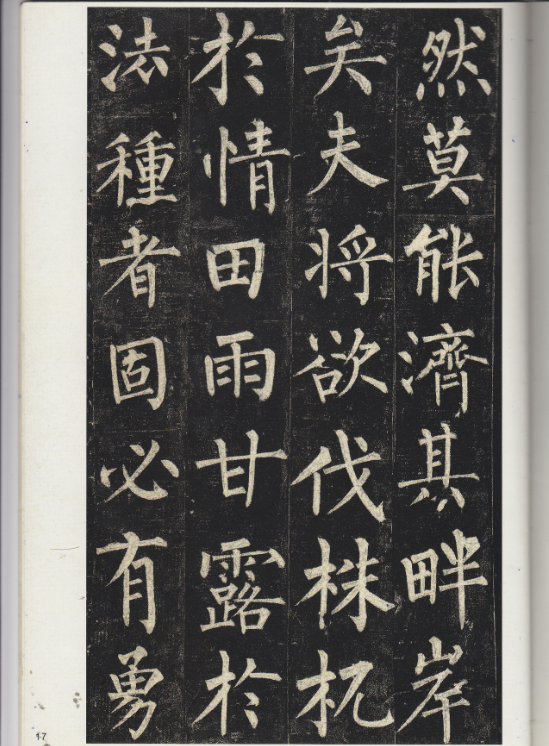 然莫能濟其畔岸
矣夫将欲伐株杌
於情田雨甘露於
法種者固必有勇
17